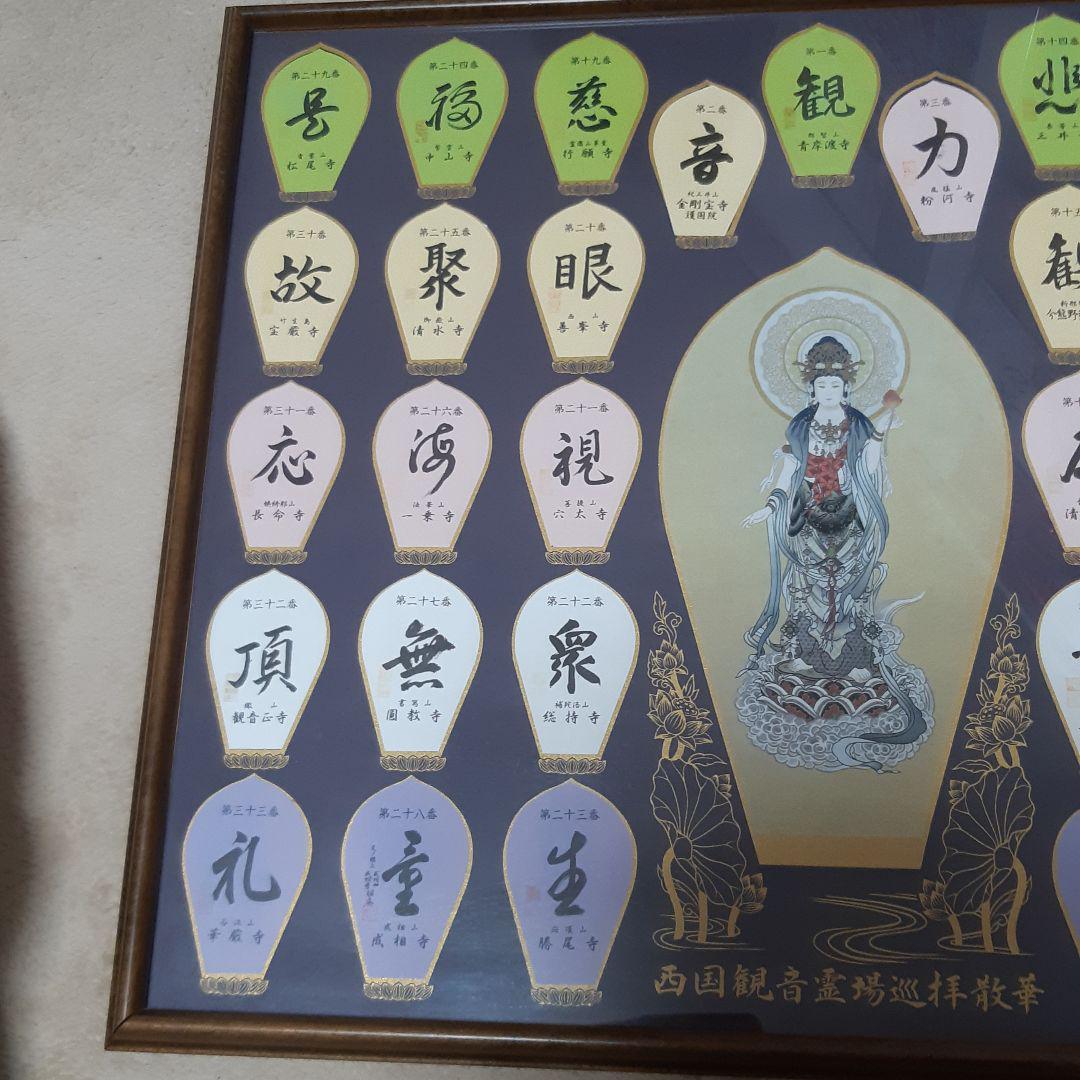 第二十九番
是
青葉山
松尾寺
第二十四番
福
紫雲山
中山寺
第十九番
慈
霊麀山革堂
行願寺
第二番
音
紀三井山
金剛宝寺
護国院
第一番
観
那智山
青岸渡寺
第三番
力
風猛山
粉河寺
第十四番
悲
三井
第三十番
故
竹生島
宝厳寺
第二十五番
聚
御嶽山
清水寺
第二十番
眼
西山
善峯寺
第十五
観
今熊野
第三十一番
応
姨綺耶山
長命寺
第二十六番
海
法華山
一乗寺
第二十一番
視
菩提山
穴太寺
清
第三十二番
頂
繖山
観音正寺
第二十七番
無
書写山
圓教寺
第二十二番
衆
補陀洛山
総持寺
第三十三番
礼
谷汲山
華厳寺
第二十八番
童
成相山
成相寺
第二十三番
生
応頂山
勝尾寺
西国観音霊場巡拝散華